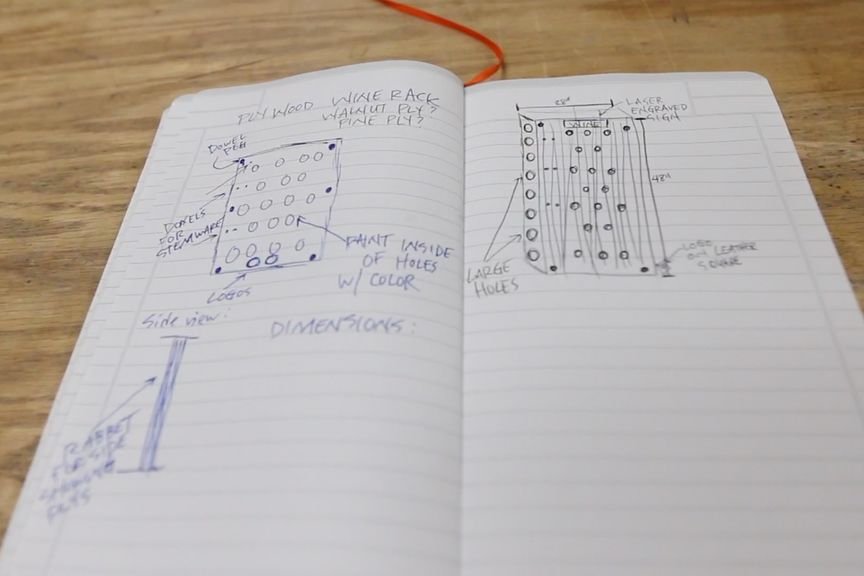 PLYWOOD WINE RACK
WALNUT PLY?
PINE PLY?
DOWEL
PEG
DOWELS
FOR
STEMWARE
PAINT INSIDE
OF HOLES
W/ COLOR
LOGOS
Side view:
DIMENSIONS:
RABBET
FOR SIDE
PLYS
28"
LASER
ENGRAVED
SIGN
WINE
48"
LARGE
HOLES
LOGO
ON LEATHER
SQUARE